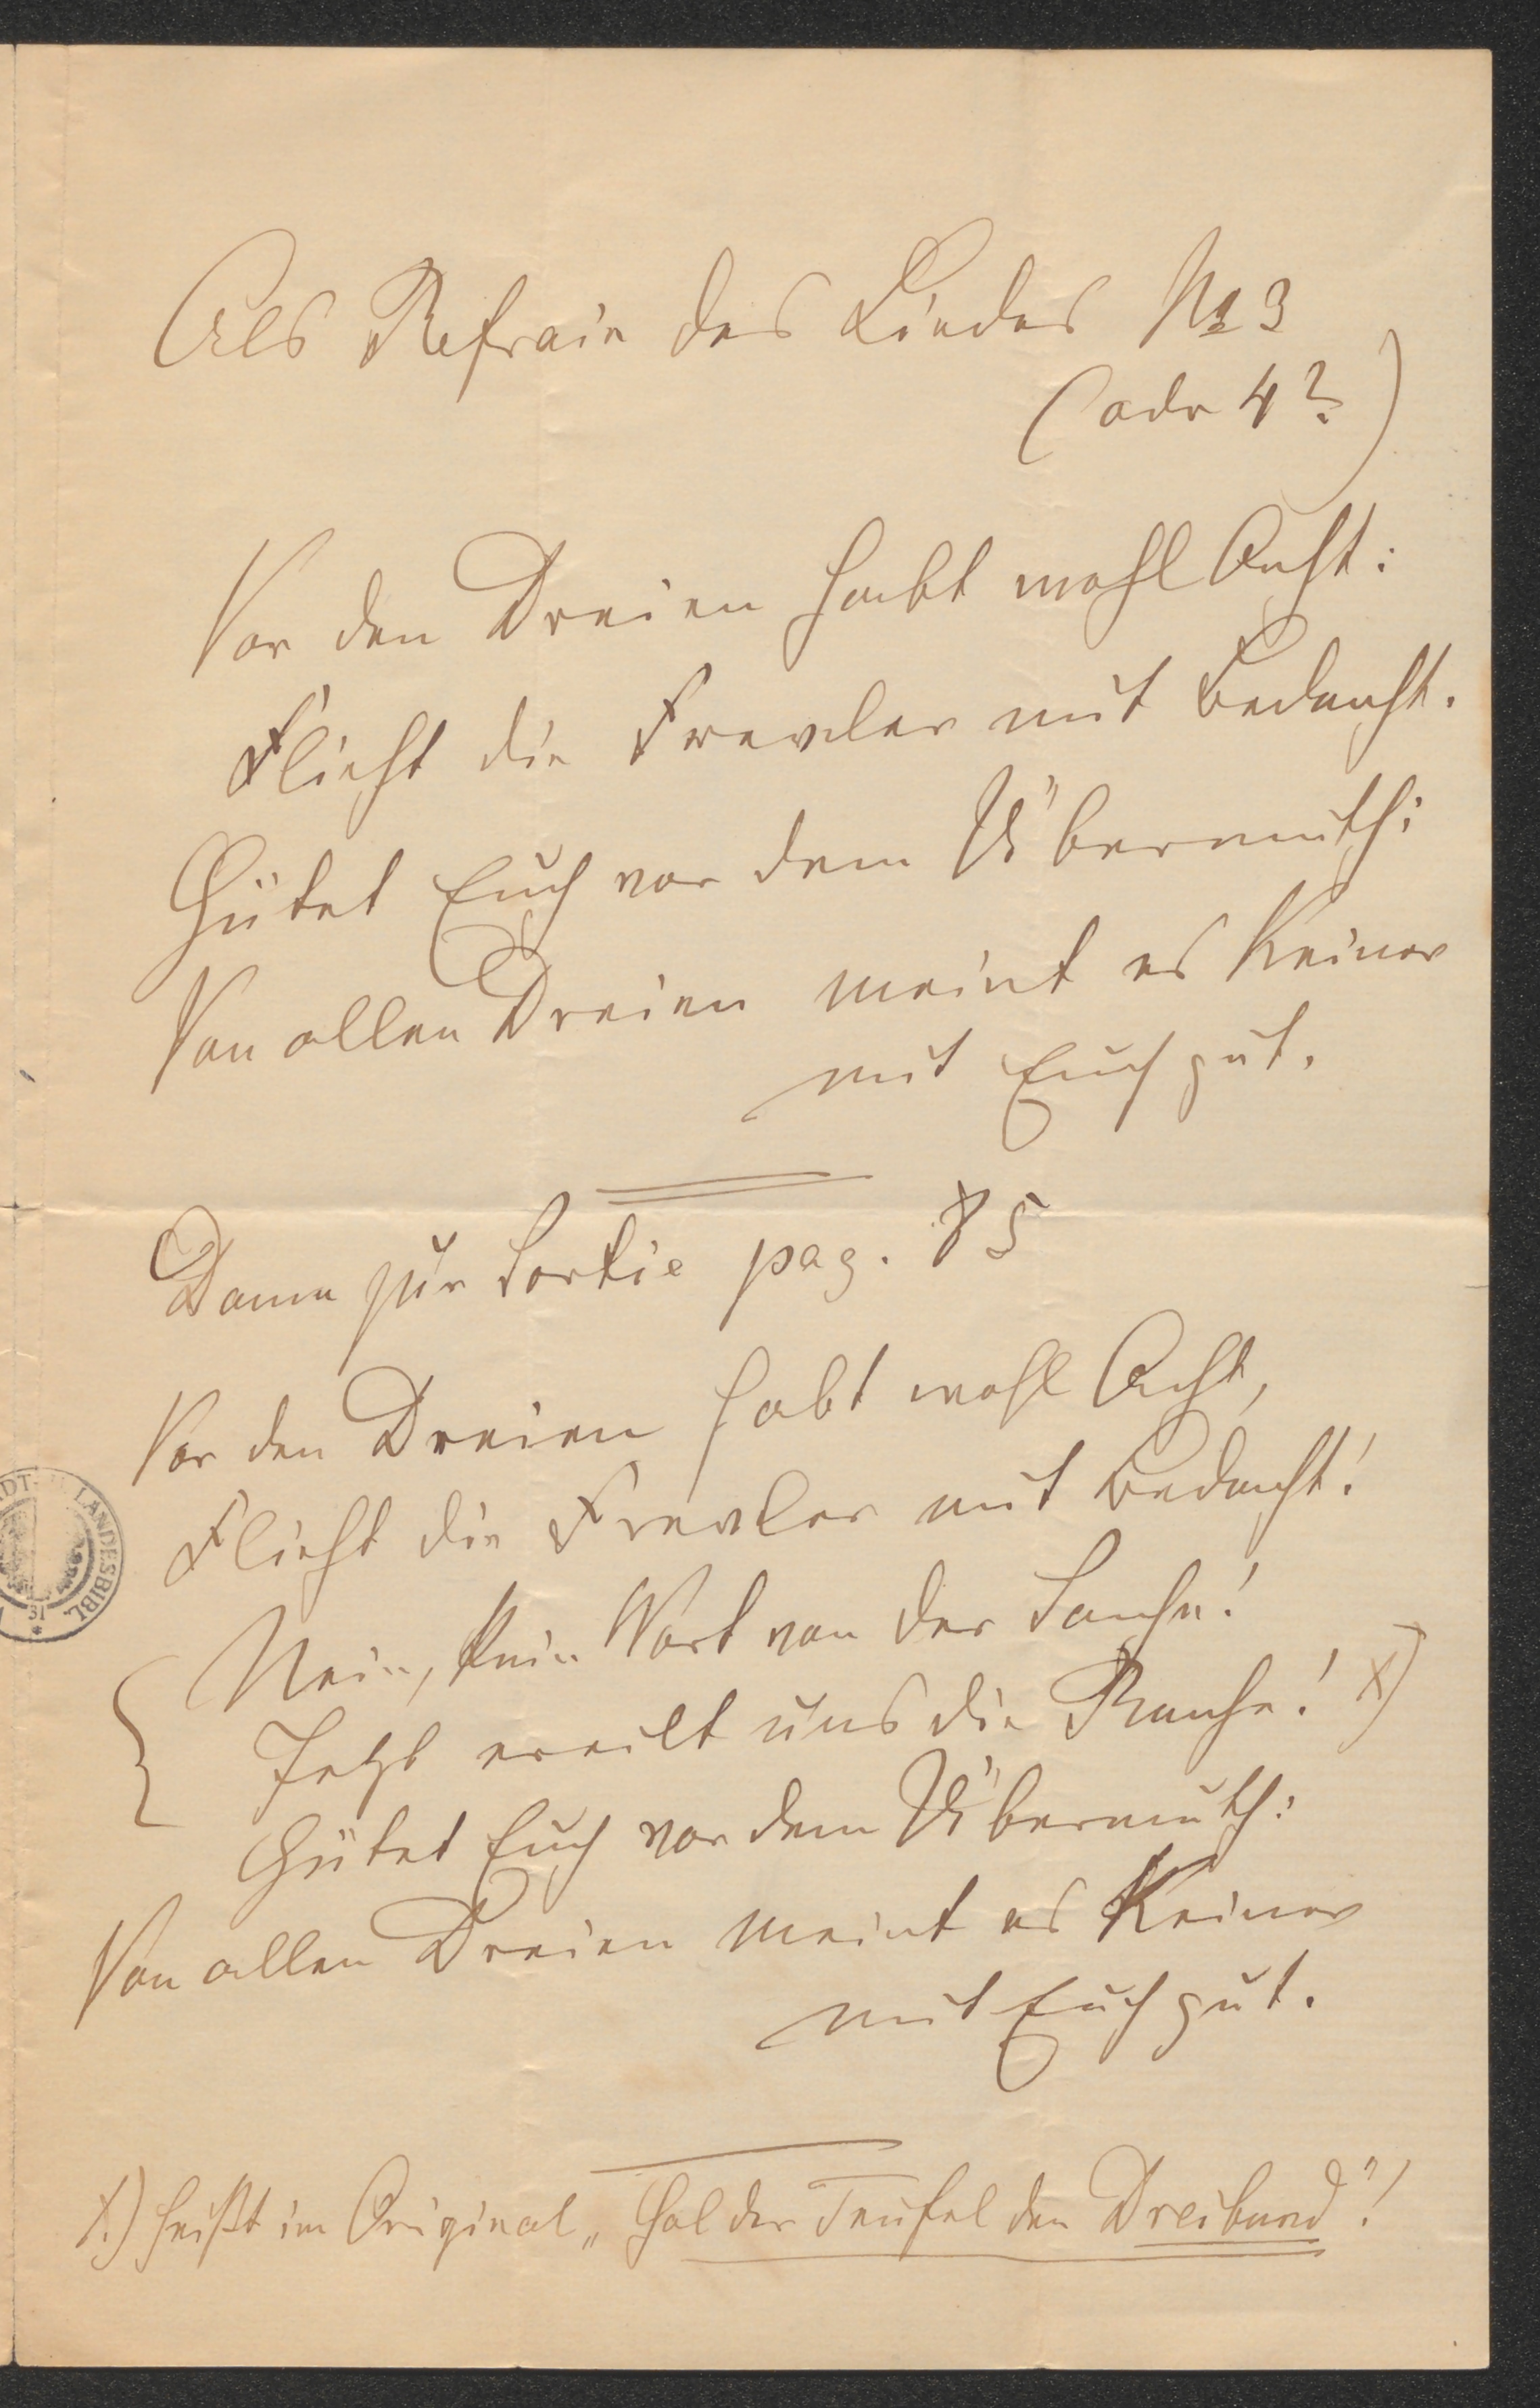 Als Refrain des Liedes No 3
(oder 4?)
Vor den Dreien habt wohl Acht:
Flieht die Frevler mit Bedacht.
Hütet Euch vor dem Übermuth:
Von allen Dreien meint es Keiner
mit Euch gut.
Dann zur Sortie pag. 85
Vor den Dreien habt wohl Acht,
Flieht die Frevler mit Bedacht!
Nein, kein Wort von der Sache!
Jetzt ereilt uns die Rache! x)
Hütet Euch vor dem Übermuth:
Von allen Dreien meint es Keiner
mit Euch gut.
x.) heißt im Original „Hol der Teufel den Dreibund"!
LANDESBIBL.
31